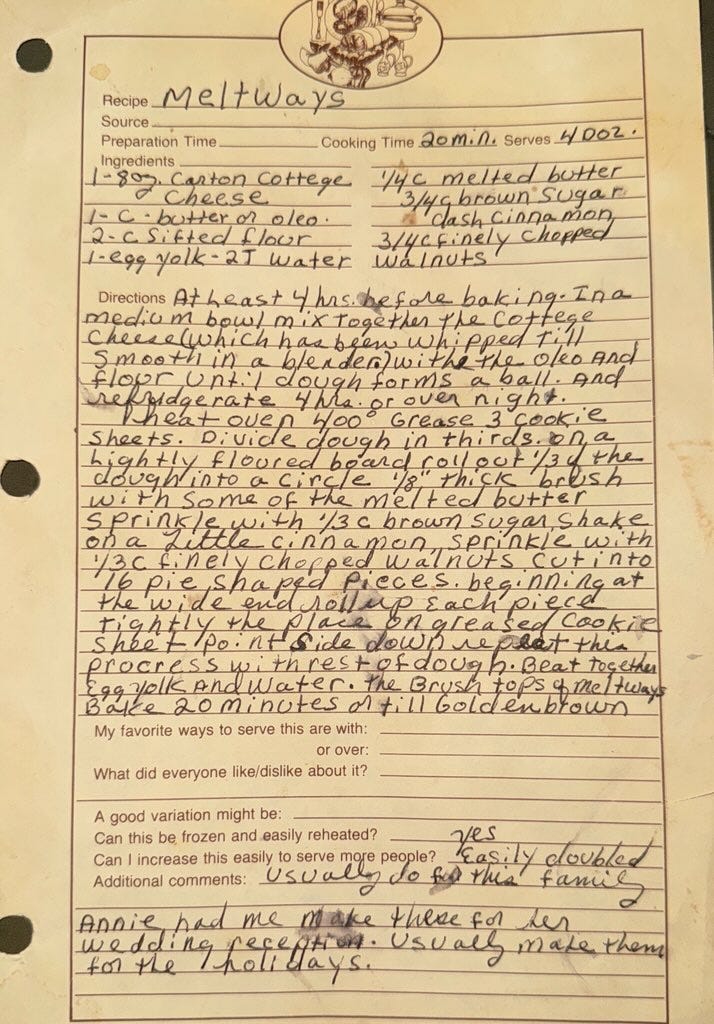 Recipe Meltways
Source
Preparation Time Cooking Time 20 min. Serves 4 DOZ.
Ingredients
1-8oz. Carton Cottege
Cheese
1-C-butter or oleo.
2-C Sifted flour
1-egg yolk-2T Water
1/4 c melted butter
3/4 c brown Sugar
dash Cinnamon
3/4 c finely chopped
walnuts
Directions At least 4 hrs. before baking. In a
medium bowl mix together the Cottege
Cheese (which has been whipped till
Smooth in a blender) withe the oleo And
flour until dough forms a ball. And
refridgerate 4 hrs. or over night.
Pheat oven 400° Grease 3 Cookie
Sheets. Divide dough in thirds. on a
Lightly floured board roll out 1/3 of the
dough into a circle 1/8" thick brush
with Some of the melted butter
Sprinkle with 1/3 c brown Sugar, Shake
on a Little cinnamon, Sprinkle with
1/3 c finely chopped walnuts cut into
16 pie shaped pieces. beginning at
the wide end roll up Each piece
tightly the place on greased Cookie
Sheet point side down repeat this
process with rest of dough. Beat together
Egg yolk And water. the Brush tops of Meltways
Bake 20 minutes or till Golden brown
My favorite ways to serve this are with:
or over:
What did everyone like/dislike about it?
A good variation might be:
Can this be frozen and easily reheated? yes
Can I increase this easily to serve more people? Easily doubled
Additional comments: Usually do for this family
Annie had me make these for her
wedding reception. Usually make them
for the holidays.